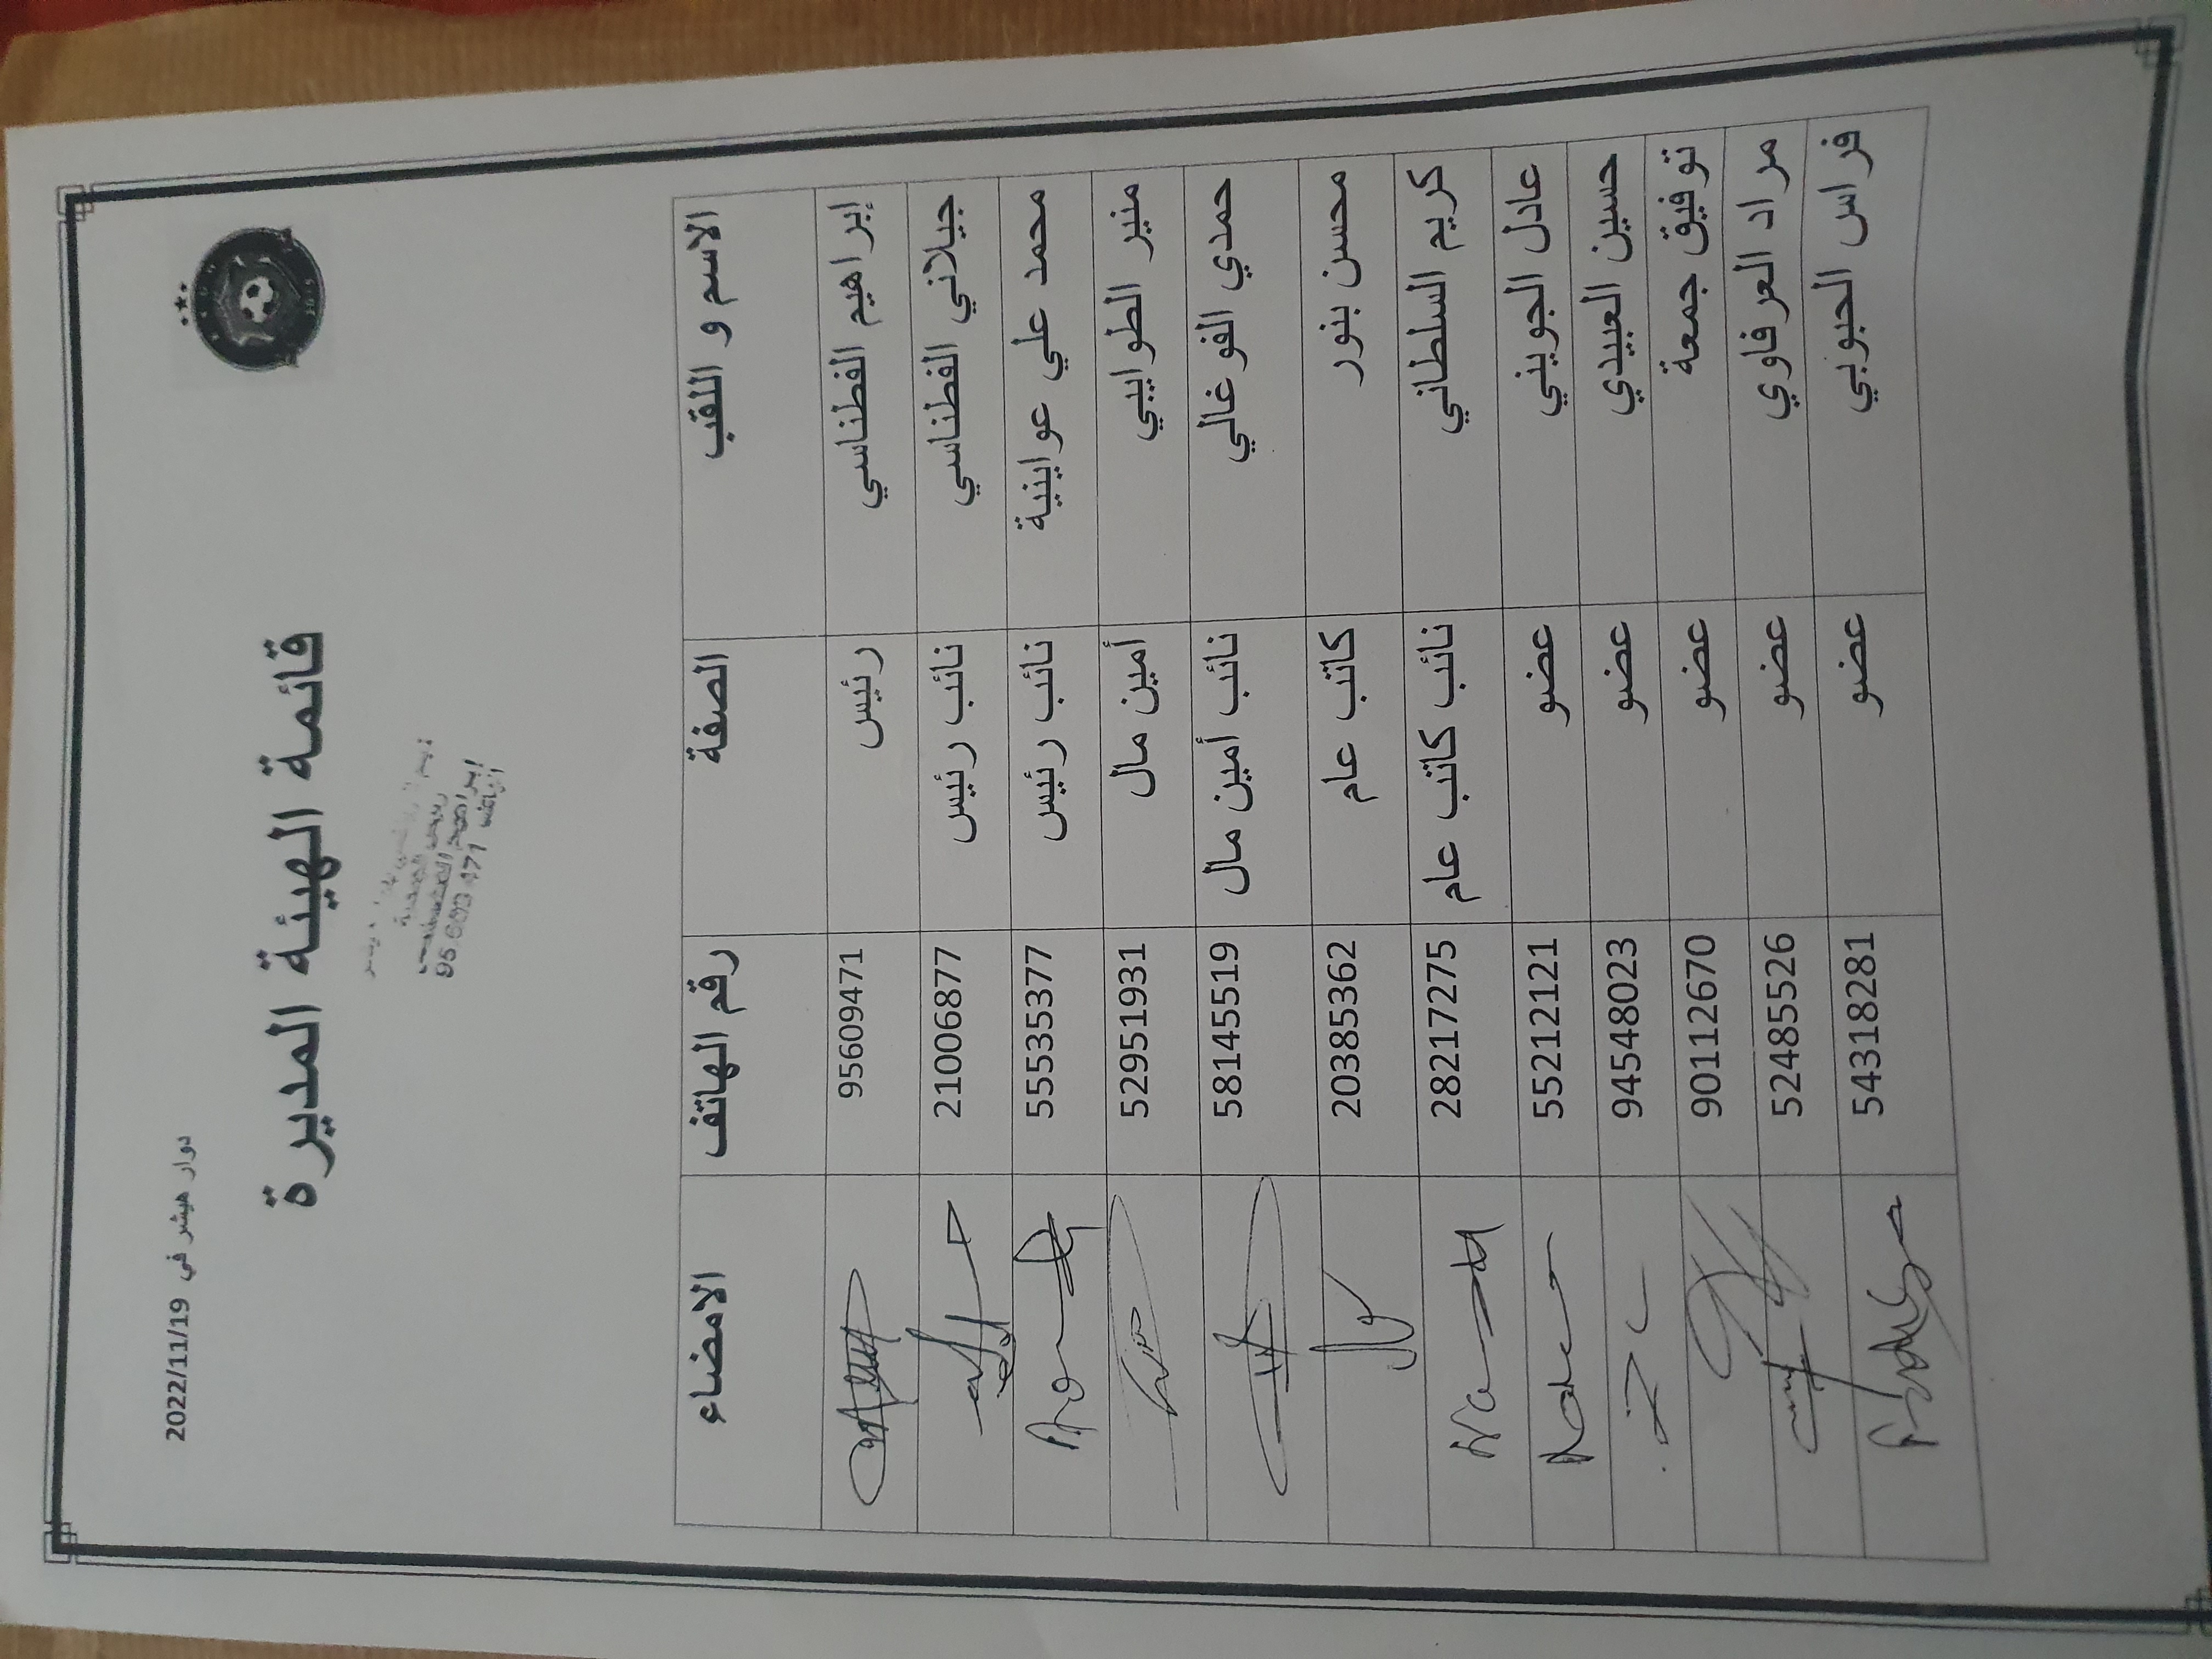 دوار هيشر في 2022/11/19
قائمة الهيئة المديرة
95 609 471
الاسم و اللقب الصفة رقم الهاتف الامضاء
إبراهيم الفطناسي رئيس 95609471
جيلاني الفطناسي نائب رئيس 21006877
محمد علي عواينية نائب رئيس 55535377
منير الطوايبي أمين مال 52951931
حمدي الفوغالي نائب أمين مال 58145519
محسن بنور كاتب عام 20385362
كريم السلطاني نائب كاتب عام 28217275
عادل الجويني عضو 55212121
حسين العبيدي عضو 94548023
توفيق جمعة عضو 90112670
مراد العرفاوي عضو 52485526
فراس الحبوبي عضو 54318281